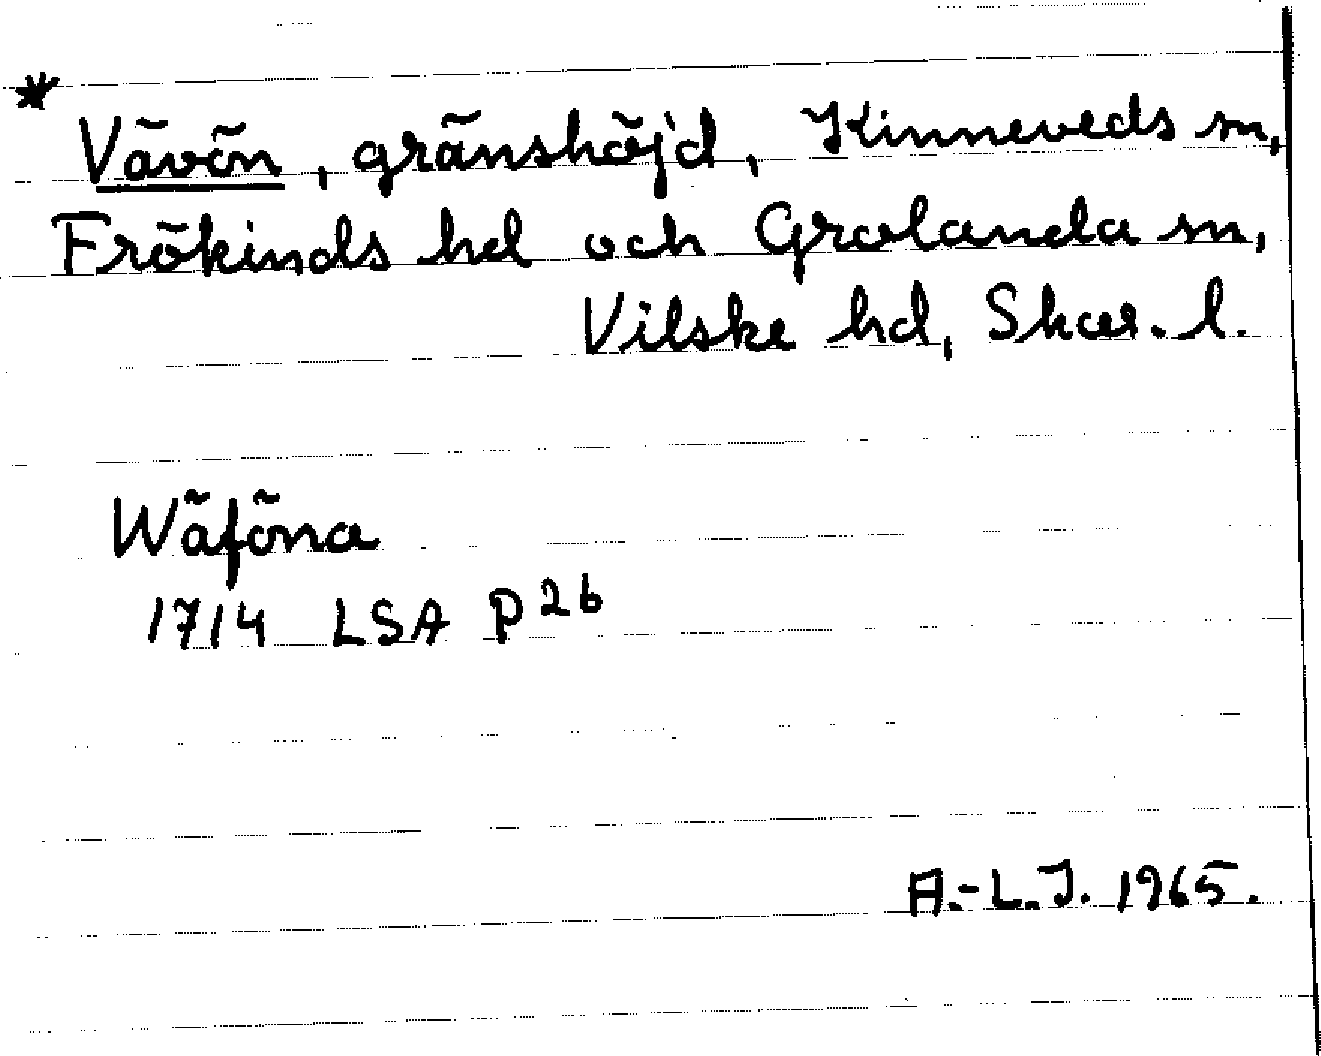 * Vävön, gränshöjd, Kinneveds sn,
Frökinds hd och Grolanda sn,
Vilske hd, Skar. l.
Wäföna
1714 LSA P26
A.-L.J. 1965.